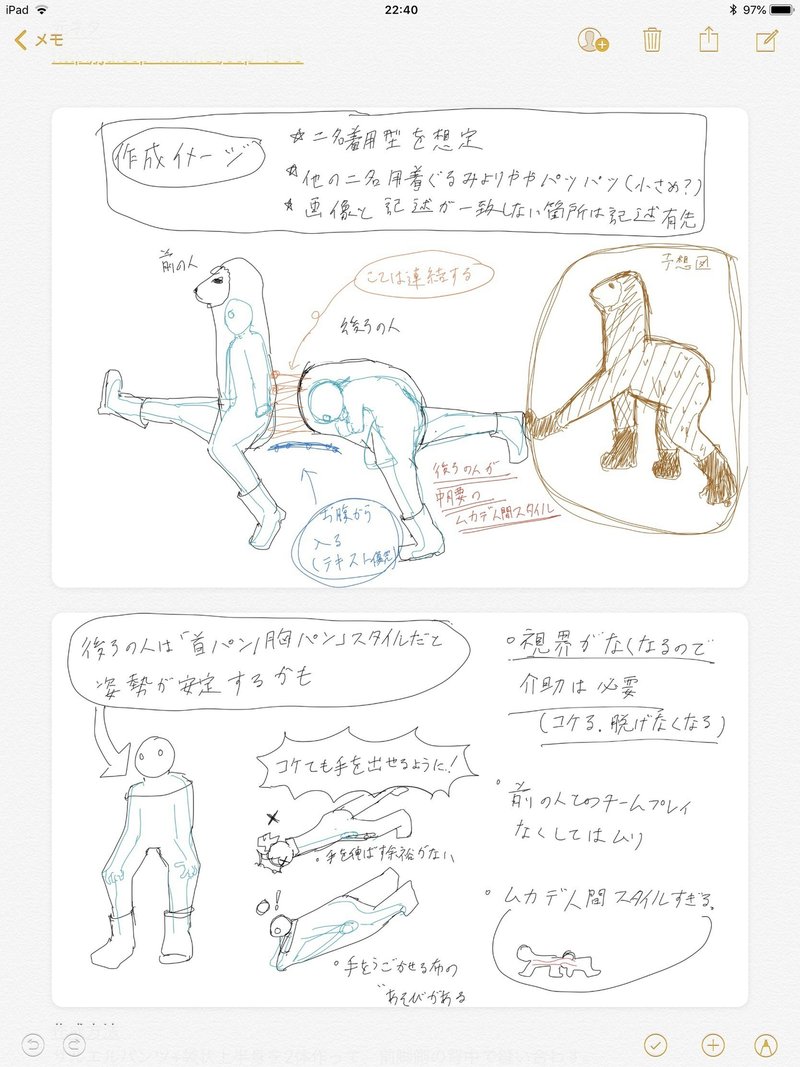 iPad
22:40
97%
メモ
作成イメージ
☆二名着用型を想定
☆他の二名用着ぐるみよりややパツパツ(小さめ?)
☆画像と記述が一致しない箇所は記述有先
前の人
ここは連結する
後ろの人
予想図
後ろの人が
中腰の
ムカデ人間スタイル
お腹から
入る
(テキスト優先)
後ろの人は「首パン/胸パン」スタイルだと
姿勢が安定するかも
○視界がなくなるので
介助は必要
(コケる、脱げなくなる)
コケても手を出せるように!
○手を伸ばす余裕がない
○前の人とのチームプレイ
なくしてはムリ
○ムカデ人間スタイルすぎる。
○手をうごかせる布の
"あそび"がある